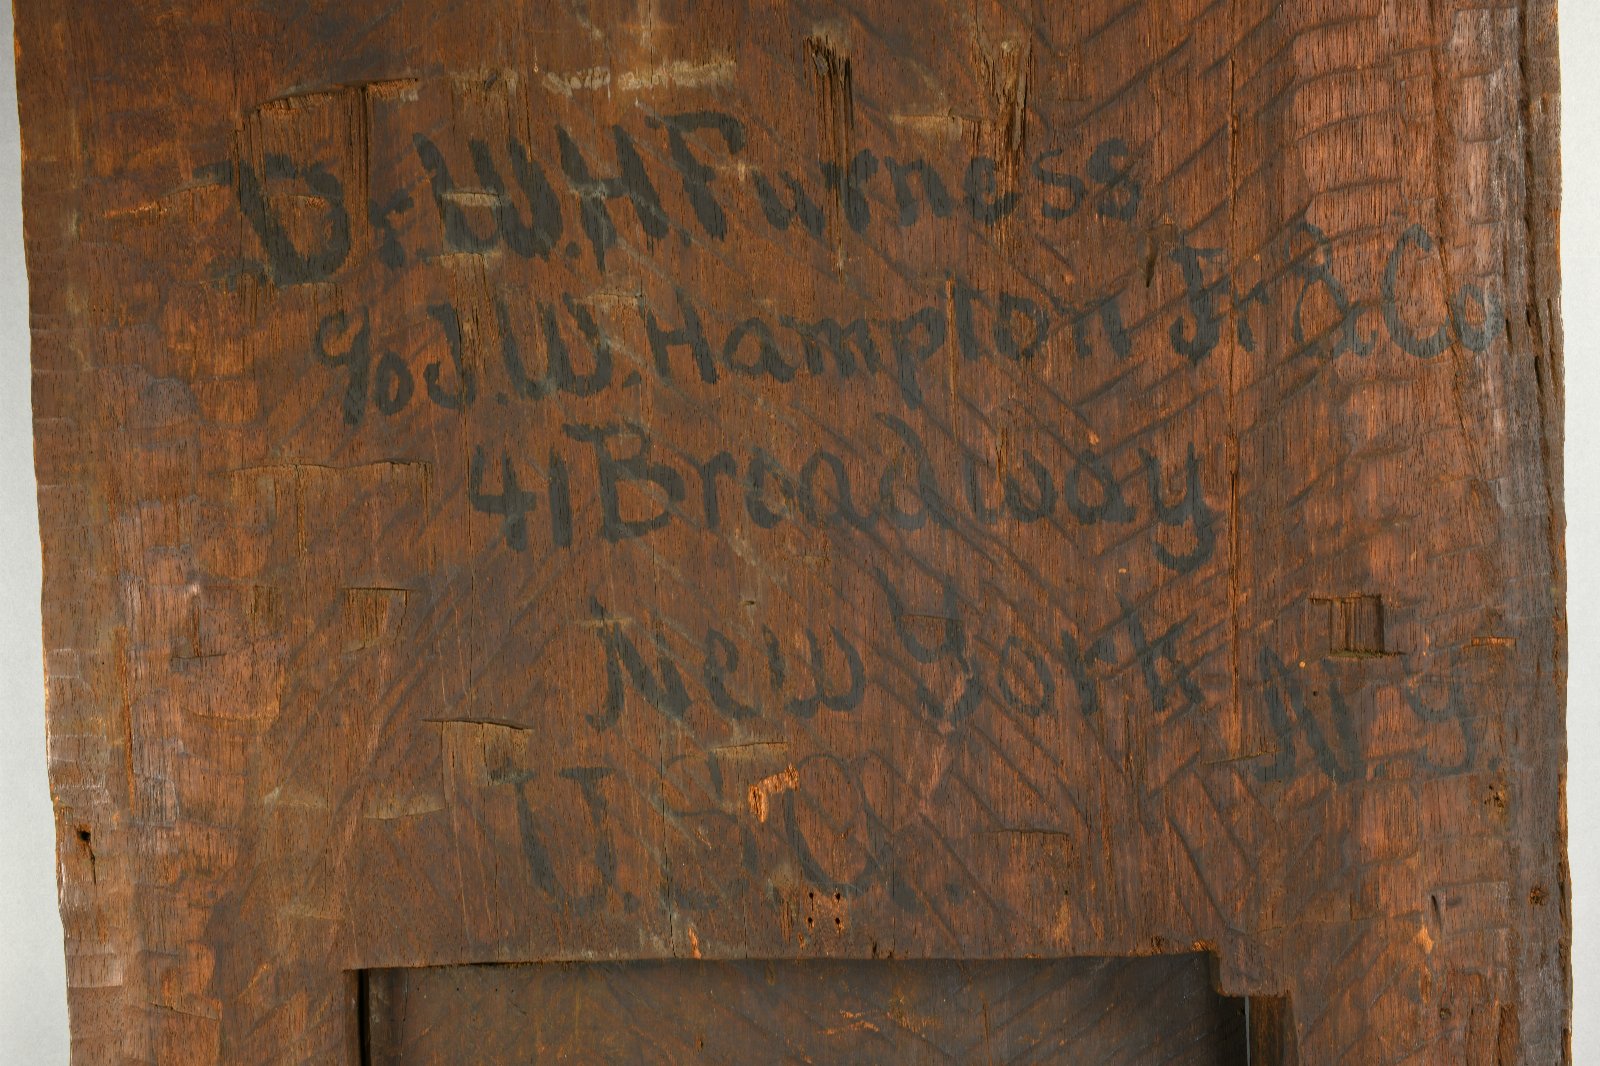 Dr. W. H. Furness
c/o J. W. Hampton Jr. & Co
41 Broadway
New York N.Y.
U.S.A.